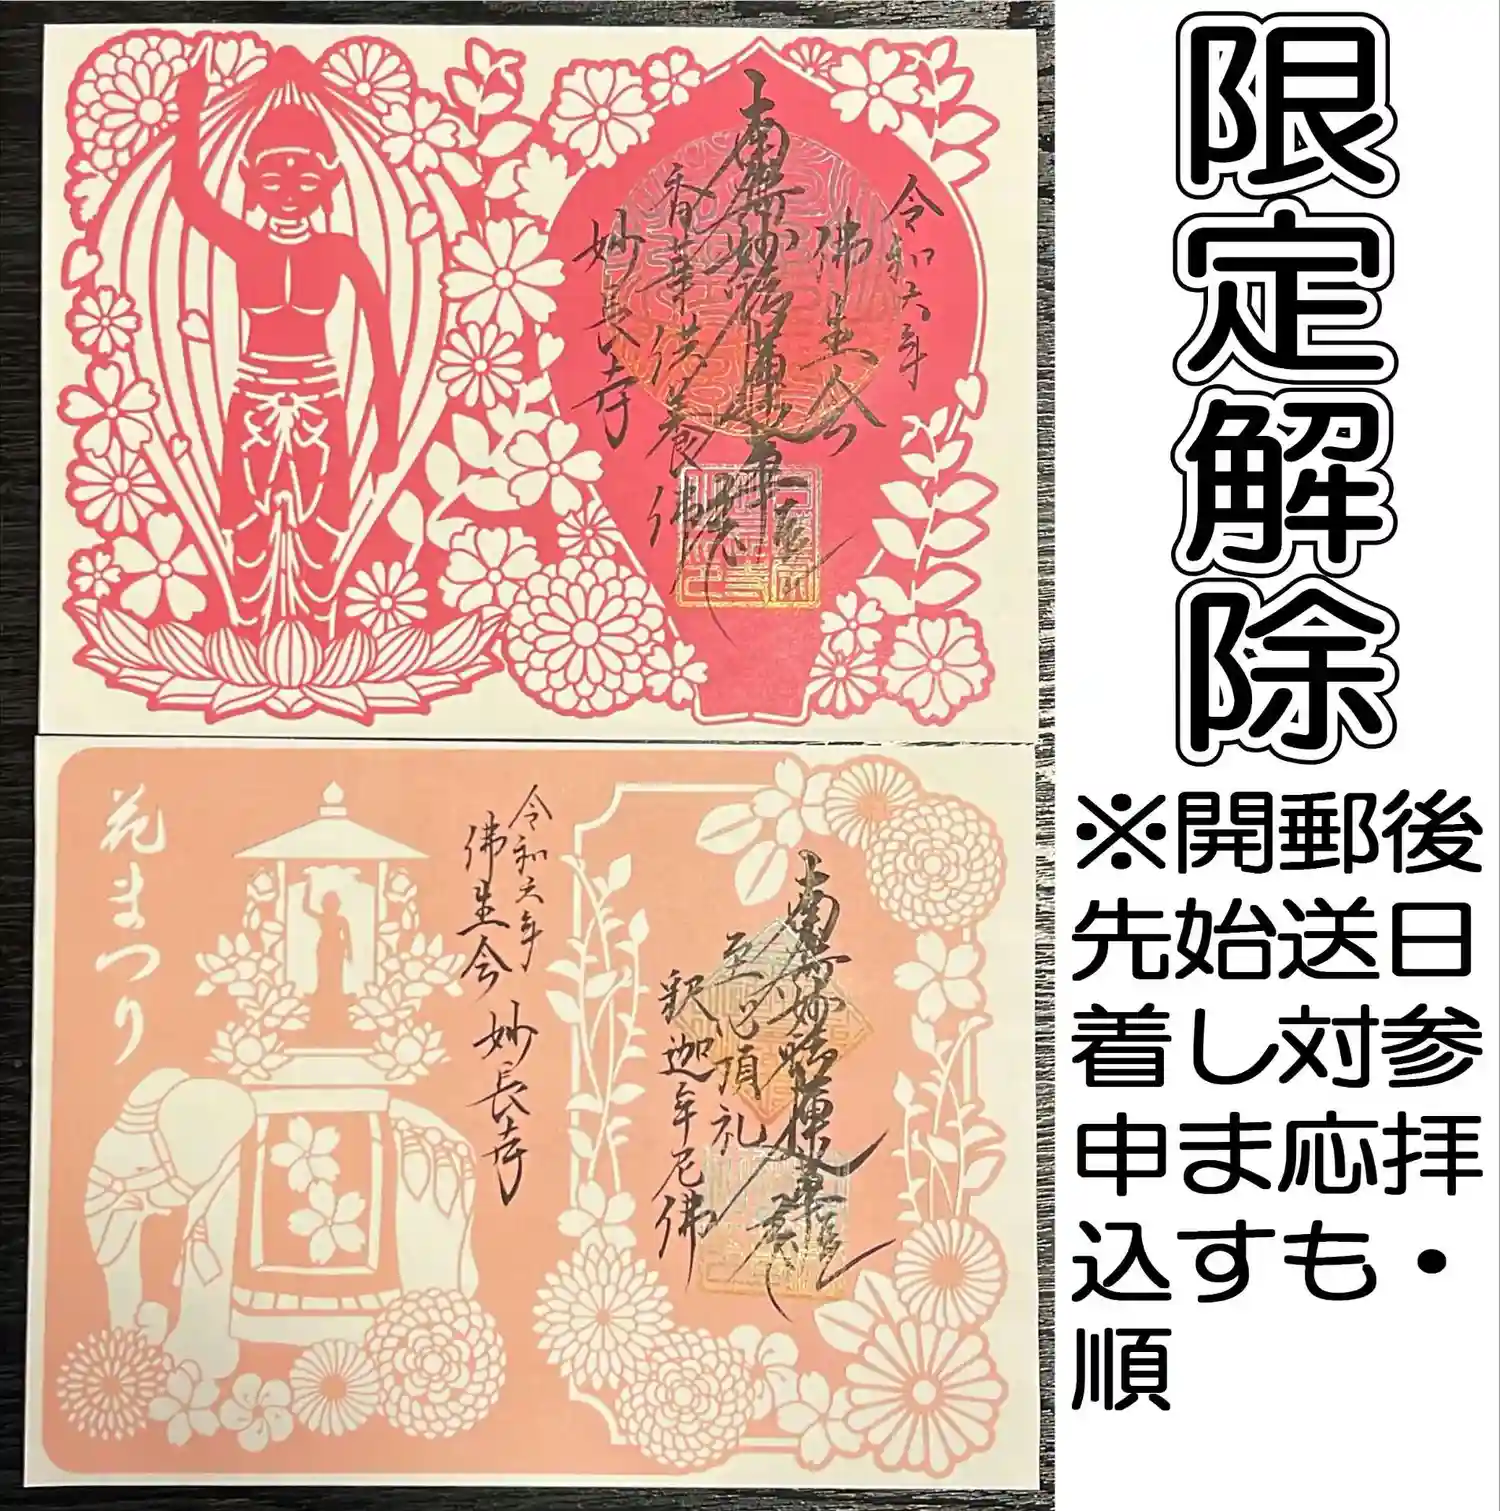 限定解除
後日参拝・
郵送対応も
開始します
※先着申込順
令和六年
佛生会
南無妙法蓮華経
香華供養佛
妙長寺
南無妙法蓮華経
至心頂礼
釈迦牟尼佛
令和六年
佛生会 妙長寺
花まつり